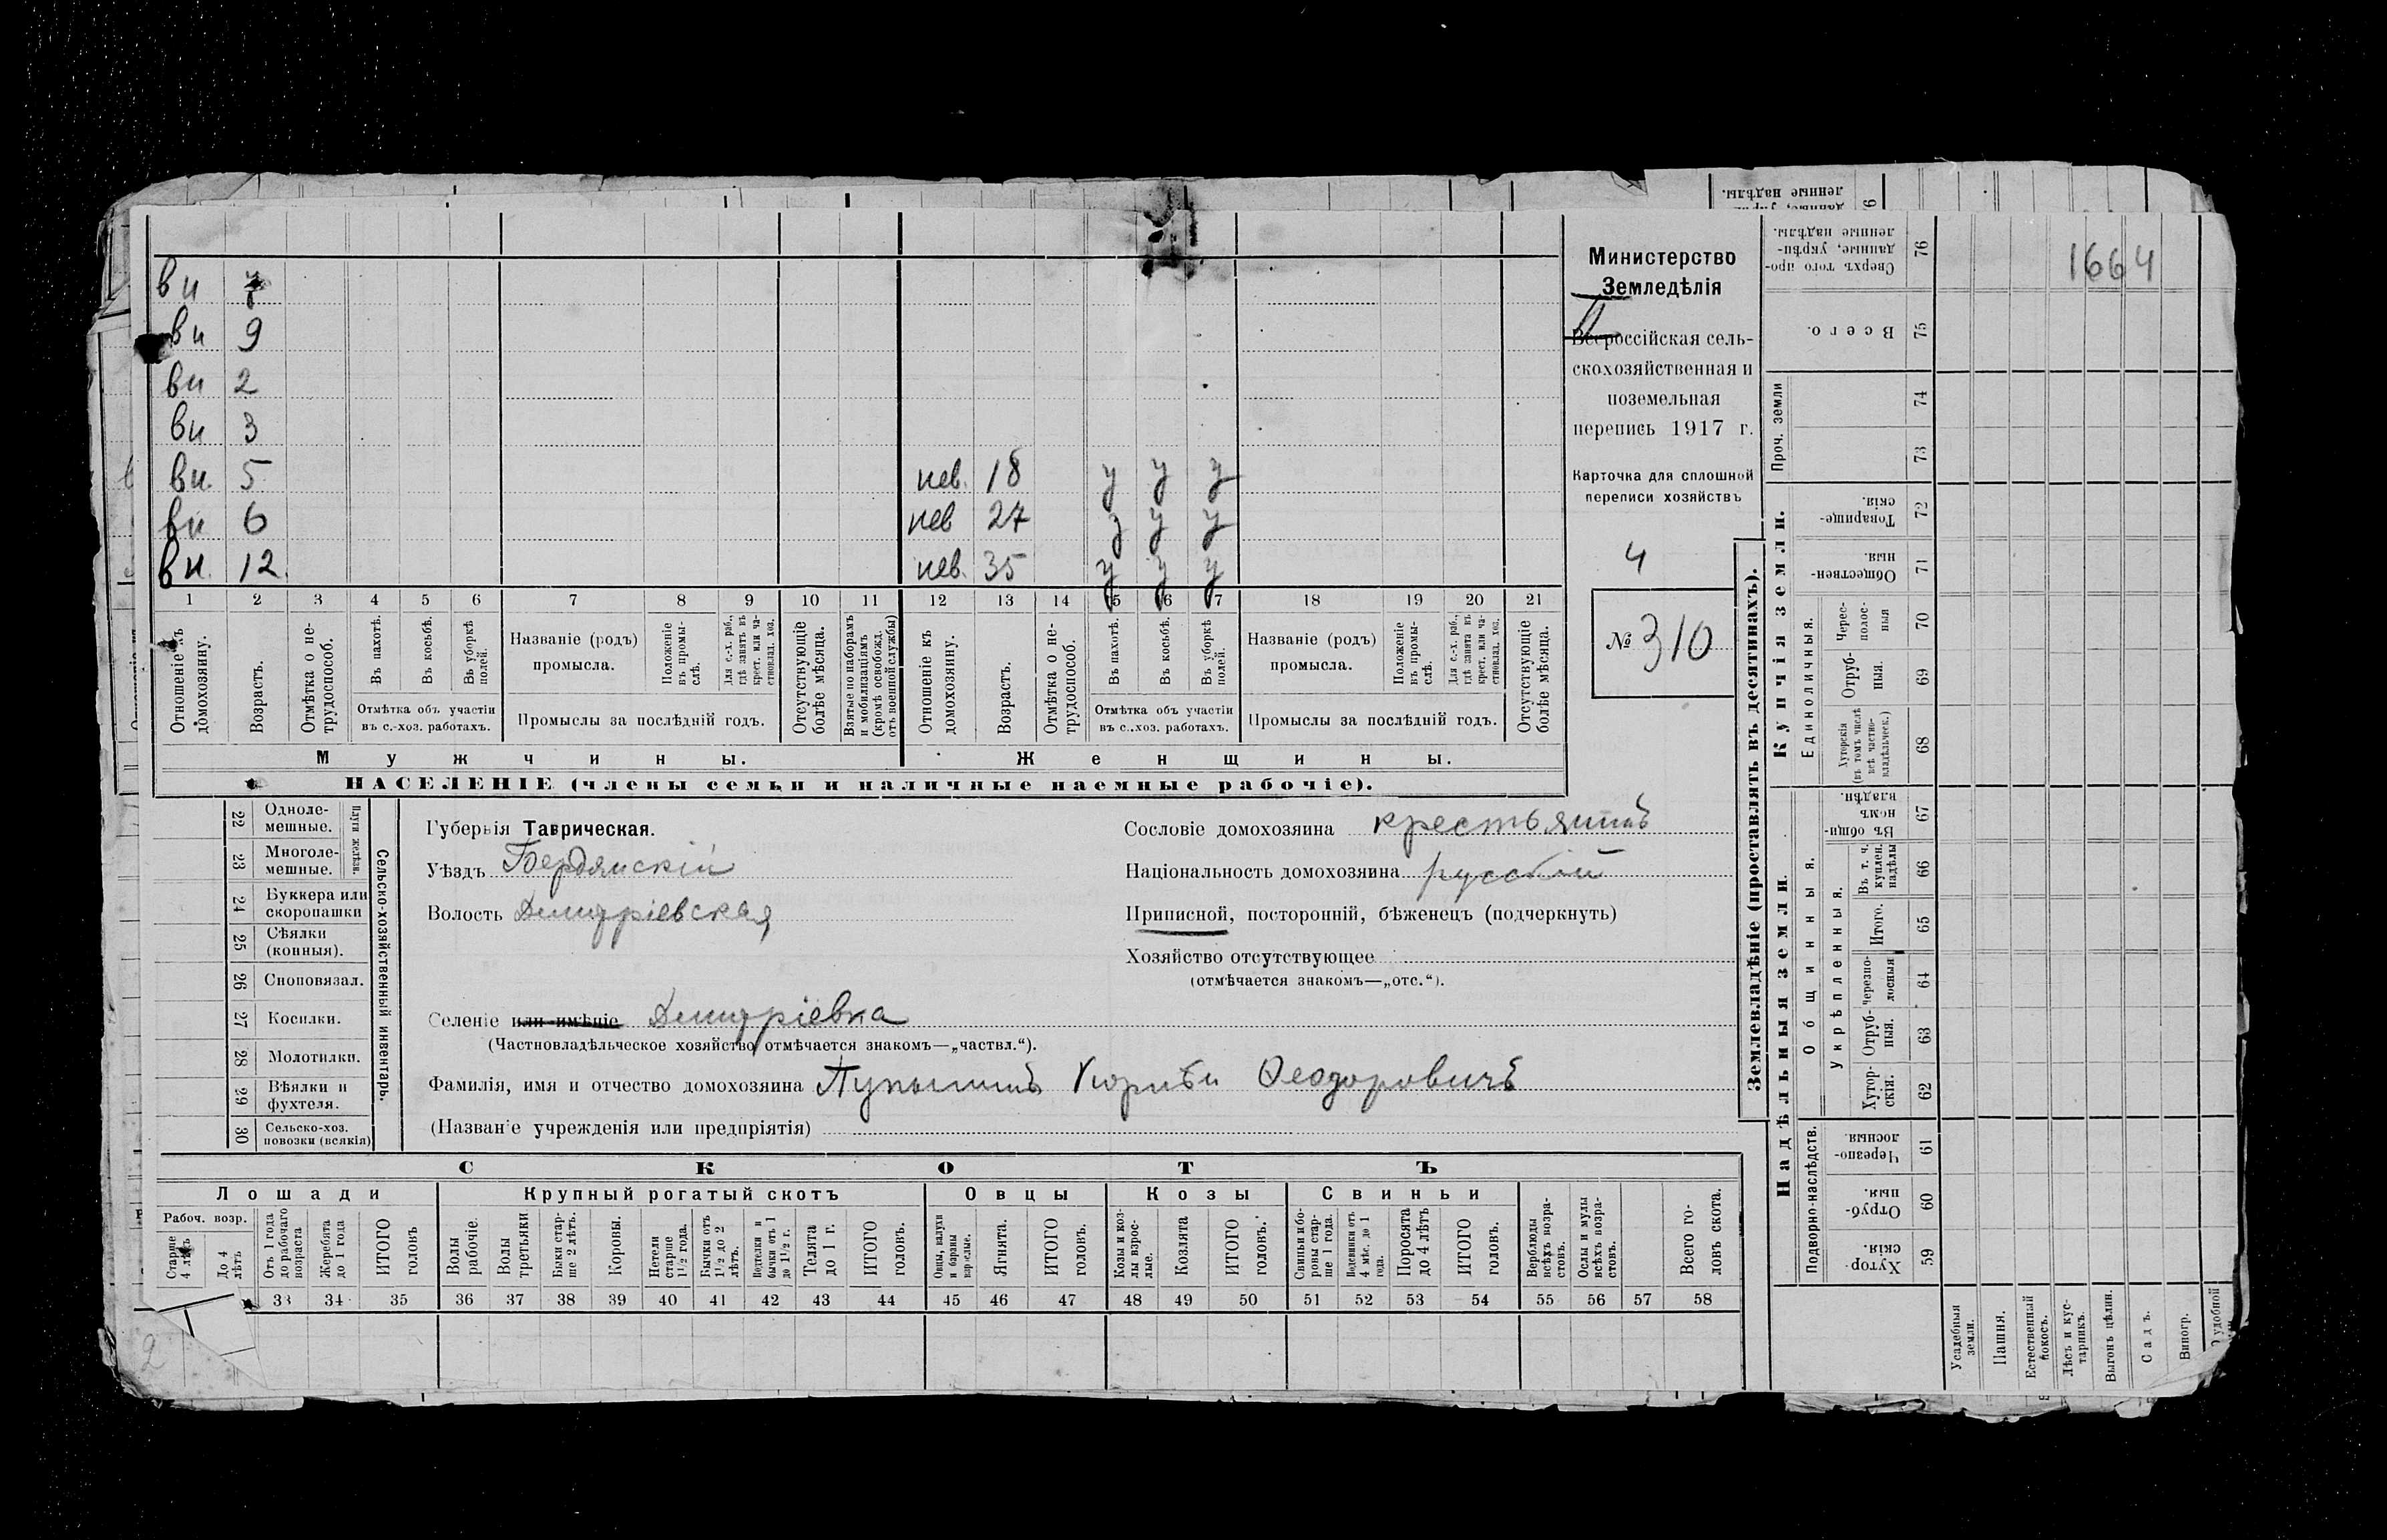 1664
вн 7
вн 9
вн 2
вн 3
вн. 5 нев. 18 у у у
вн 6 нев 27 у у у
вн. 12. нев. 35 у у у
1 2 3 4 5 6 7 8 9 10 11 12 13 14 15 16 17 18 19 20 21
Отношеніе къ домохозяину.
Возрастъ.
Отмѣтка о не-трудоспособ.
Въ пахотѣ.
Въ косьбѣ.
Въ уборкѣ полей.
Отмѣтка объ участіи въ с.-хоз. работахъ.
Названіе (родъ) промысла.
Положеніе въ промы-слѣ.
Для с.-х. раб., гдѣ занятъ въ крест. или ча-стновлад. хоз.
Промыслы за послѣдній годъ.
Отсутствующіе болѣе мѣсяца.
Взятые по наборамъ и мобилизаціямъ (кромѣ освобожд. отъ военной службы)
Отношеніе къ домохозяину.
Возрастъ.
Отмѣтка о не-трудоспособ.
Въ пахотѣ.
Въ косьбѣ.
Въ уборкѣ полей.
Отмѣтка объ участіи въ с..хоз. работахъ.
Названіе (родъ) промысла.
Положеніе въ промы-слѣ.
Для с.-х. раб., гдѣ занята въ крест. или ча-стновлад. хоз.
Промыслы за послѣдній годъ.
Отсутствующіе болѣе мѣсяца.
Мужчины. Женщины.
НАСЕЛЕНІЕ (члены семьи и наличные наемные рабочіе).
Министерство
Земледѣлія
Всероссійская сель-
скохозяйственная и
поземельная
перепись 1917 г.
Карточка для сплошной
переписи хозяйствъ
4
№ 310
22 Одноле-мешные.
23 Многоле-мешные.
Плуги желѣзн.
24 Буккера или скоропашки
25 Сѣялки (конныя).
26 Сноповязал.
27 Косилки.
28 Молотилки.
29 Вѣялки и фухтеля.
30 Сельско-хоз. повозки (всякія)
Сельско-хозяйственный инвентарь.
Губернія Таврическая.
Уѣздъ Бердянскій
Волость Дмитріевская
Селеніе или имѣніе Дмитріевка
(Частновладѣльческое хозяйство отмѣчается знакомъ—„частвл.“).
Фамилія, имя и отчество домохозяина Феодоровичъ
(Названіе учрежденія или предпріятія)
Сословіе домохозяина крестьянинъ
Національность домохозяина русскій
Приписной, посторонній, бѣженец (подчеркнуть)
Хозяйство отсутствующее
(отмѣчается знакомъ—„отс.“).
СКОТЪ
Лошади Крупный рогатый скотъ Овцы Козы Свиньи
Рабоч. возр.
Старше 4 лѣтъ
До 4 лѣтъ
Отъ 1 года до рабочаго возраста
Жеребята до 1 года
ИТОГО головъ
Волы рабочіе.
Волы третьяки
Быки стар-ше 2 лѣтъ.
Коровы.
Нетели старше 1 1/2 года.
Бычки отъ 1 1/2 до 2 лѣтъ.
Подтелки и бычки отъ 1 до 1 1/2 г.
Телята до 1 г.
ИТОГО головъ.
Овцы, валухи и бараны взрослые.
Ягнята.
ИТОГО головъ.
Козы и коз-лы взрос-лые.
Козлята
ИТОГО головъ.
Свиньи и бо-ровы стар-ше 1 года.
Подсвинки отъ 4 мѣс. до 1 года.
Поросята до 4 лѣтъ
ИТОГО головъ.
Верблюды всѣхъ возра-стовъ.
Ослы и мулы всѣхъ возра-стовъ.
Всего го-ловъ скота.
33 34 35 36 37 38 39 40 41 42 43 44 45 46 47 48 49 50 51 52 53 54 55 56 57 58
2
Землевладѣніе (проставлять въ десятинахъ).
Купчія земли.
Надѣльныя земли.
Сверхъ того про-данные, укрѣп-ленные надѣлы. 76
Всего. 75
Проч. земли 74 73
Товарище-скія. 72
Обществен-ныя. 71
Единоличныя.
Черес-полос-ныя 70
Отруб-ныя. 69
Хуторскія (въ томъ числѣ всѣ частно-владѣльческ.) 68
Общинныя.
Въ общи-номъ владѣн. 67
Укрѣпленныя.
Въ т. ч. куплен. надѣлы 66
Итого. 65
Черезпо-лосныя 64
Отруб-ныя. 63
Хутор-скія. 62
Подворно-наслѣдств.
Черезпо-лосныя. 61
Отруб-ныя. 60
Хутор-скія. 59
Усадебныя земли.
Пашня.
Естественный покосъ.
Лѣсъ и кус-тарникъ.
Выгонъ цѣлин.
Садъ.
Виногр.